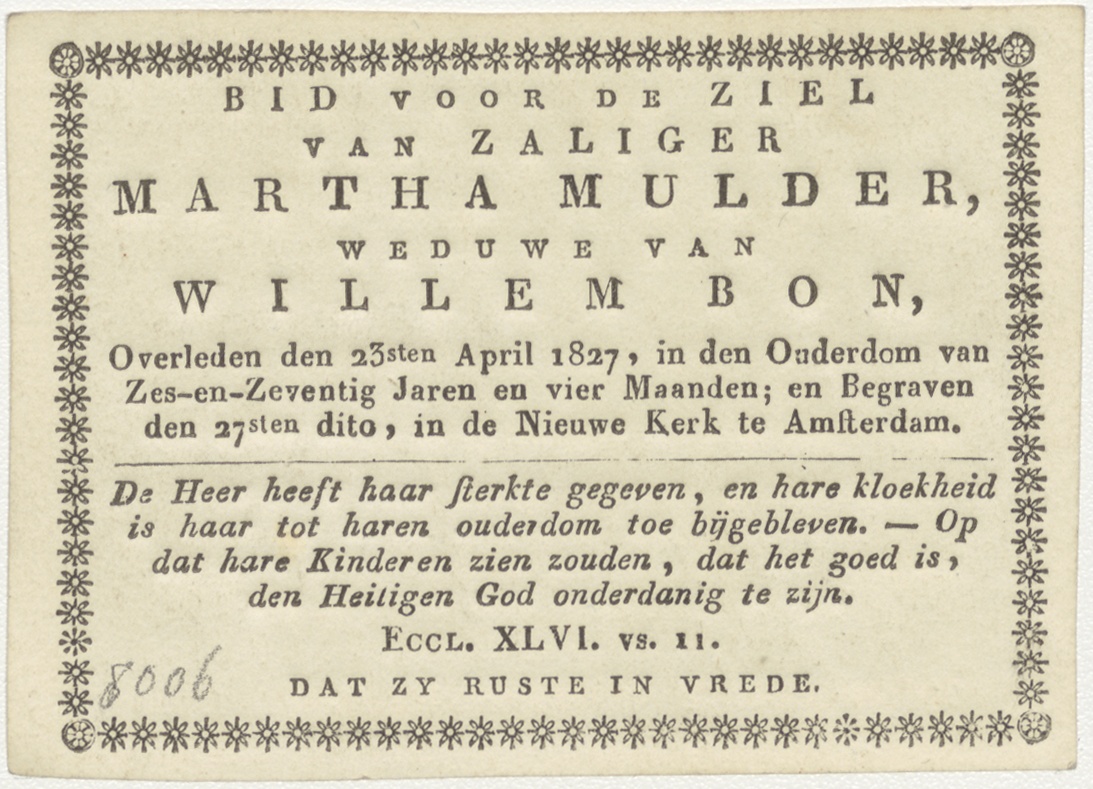 BID VOOR DE ZIEL
VAN ZALIGER
MARTHA MULDER,
WEDUWE VAN
WILLEM BON,
Overleden den 23sten April 1827, in den Ouderdom van
Zes-en-Zeventig Jaren en vier Maanden; en Begraven
den 27sten dito, in de Nieuwe Kerk te Amſterdam.
De Heer heeft haar ſterkte gegeven, en hare kloekheid
is haar tot haren ouderdom toe bijgebleven. — Op
dat hare Kinderen zien zouden, dat het goed is,
den Heiligen God onderdanig te zijn.
ECCL. XLVI. vs. 11.
8006
DAT ZY RUSTE IN VREDE.